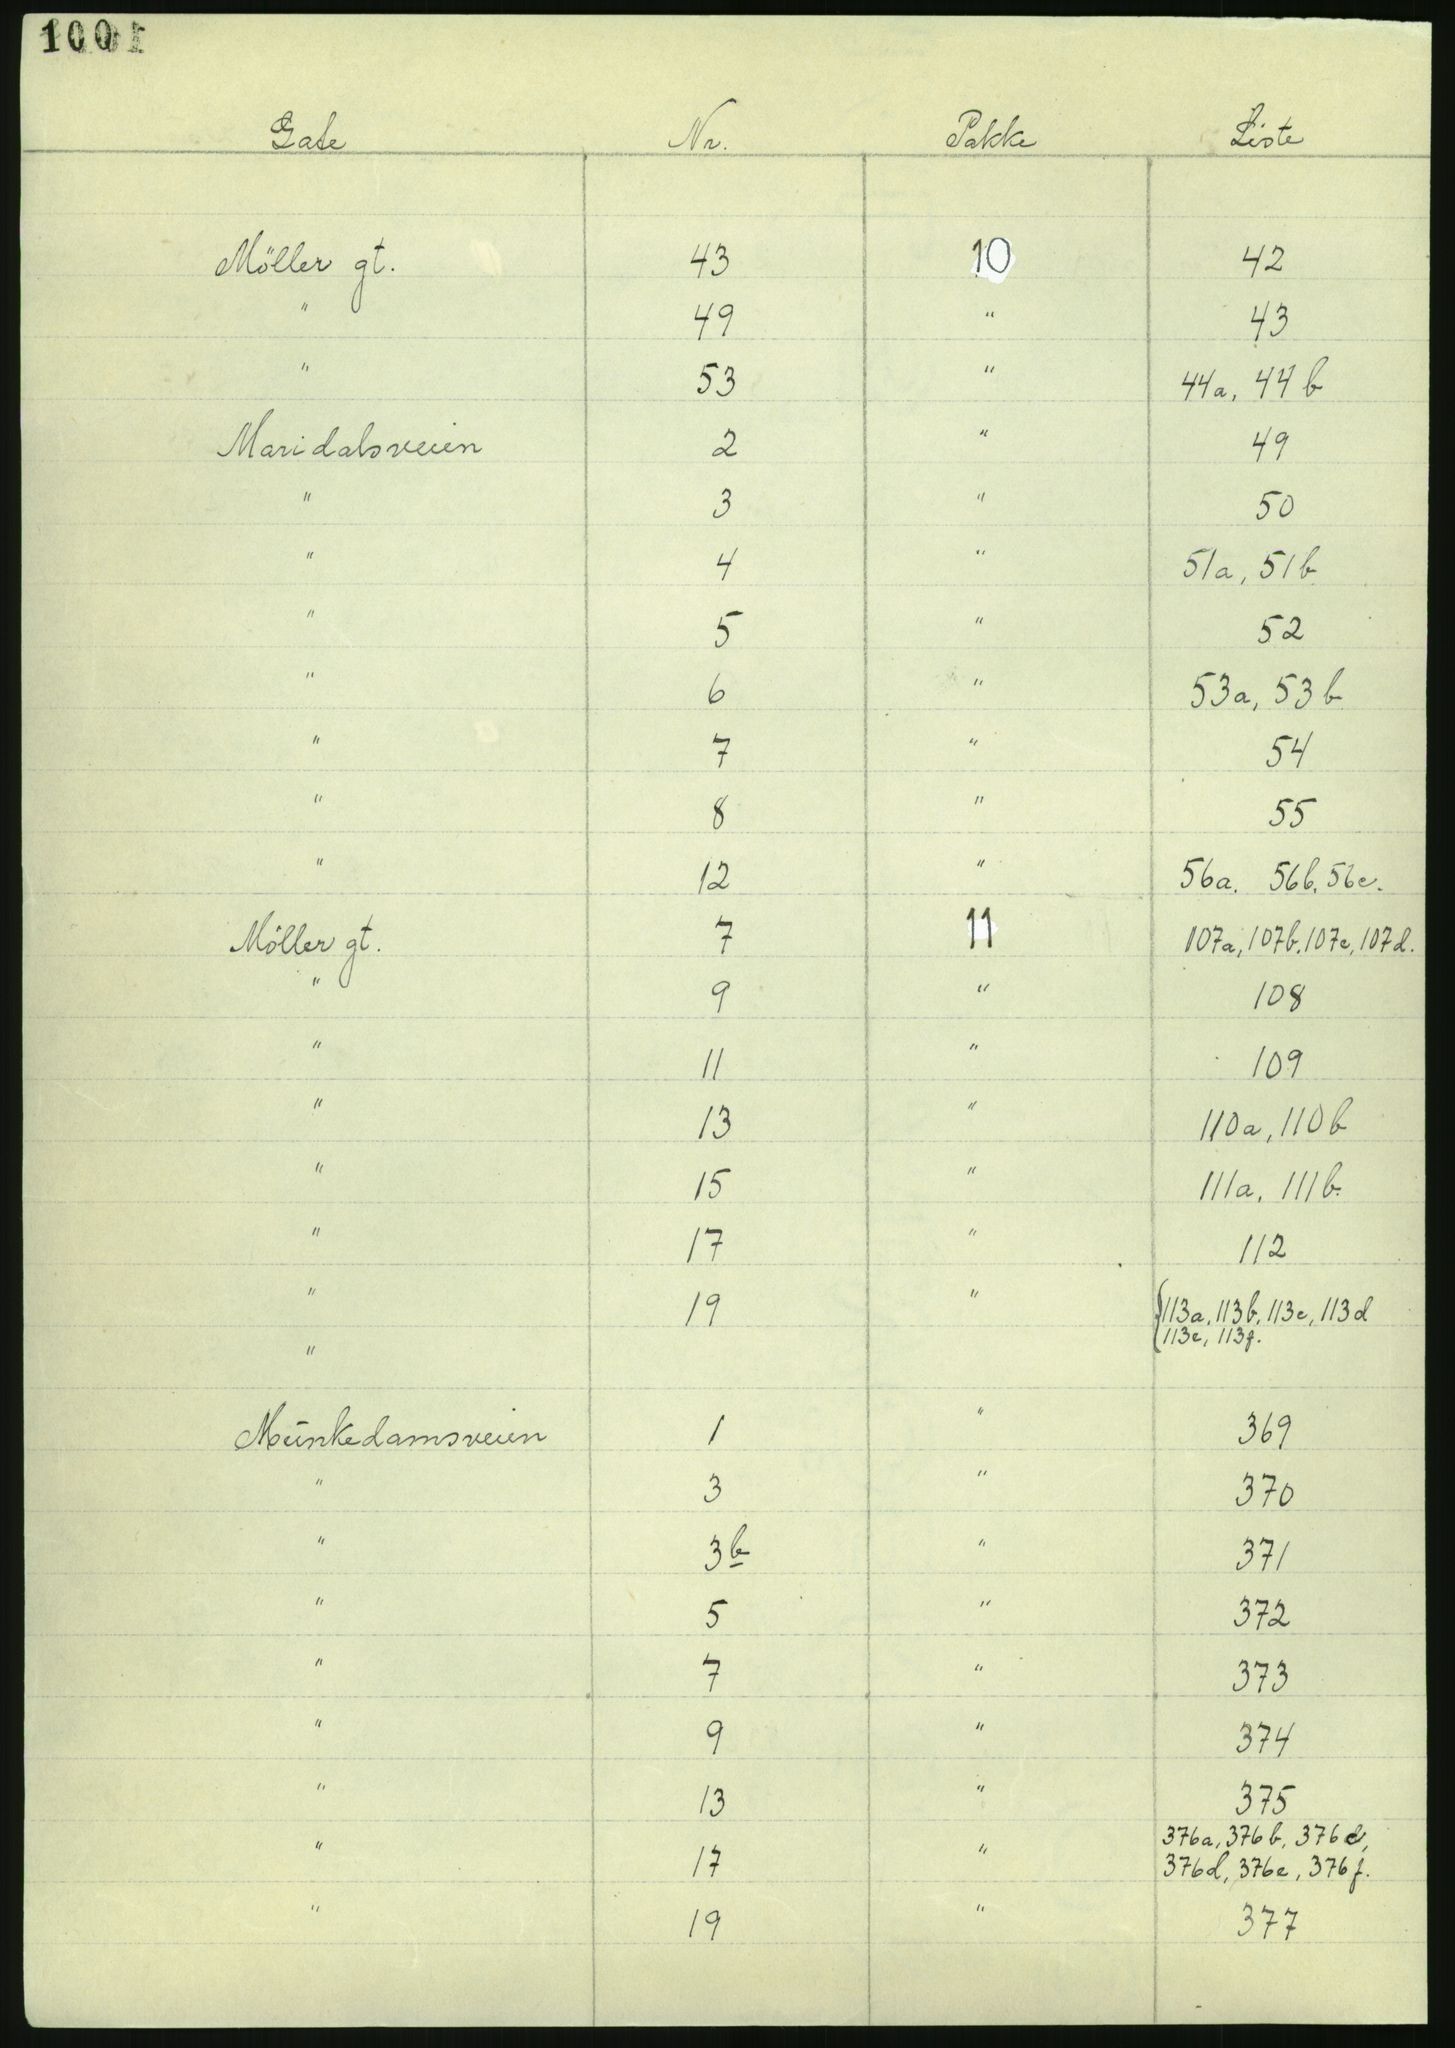 1001
Gate Nr. Pakke Liste
Möller gt. 43 10 42
" 49 " 43
" 53 " 44a, 44b
Maridalsveien 2 " 49
" 3 " 50
" 4 " 51a, 51b
" 5 " 52
" 6 " 53a, 53b
" 7 " 54
" 8 " 55
" 12 " 56a. 56b, 56c.
Möller gt. 7 11 107a, 107b, 107c, 107d.
" 9 " 108
" 11 " 109
" 13 " 110a, 110b
" 15 " 111a, 111b.
" 17 " 112
" 19 " 113a, 113b, 113c, 113d
" 113e, 113f.
Munkedamsveien 1 " 369
" 3 " 370
" 3b " 371
" 5 " 372
" 7 " 373
" 9 " 374
" 13 " 375
" 17 " 376a, 376b, 376c,
376d, 376e, 376f.
" 19 " 377